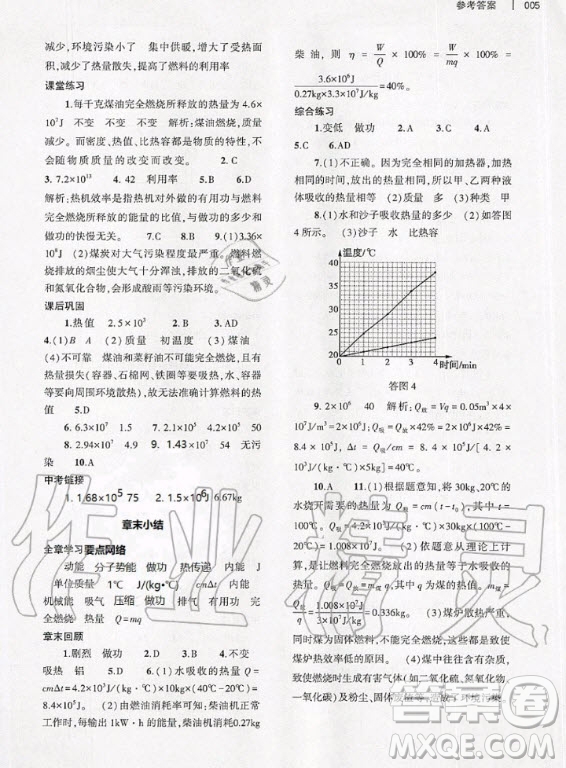 参考答案 005
减少，环境污染小了 集中供暖，增大了受热面
积，减少了热量散失，提高了燃料的利用率
课堂练习
1.每千克煤油完全燃烧所释放的热量为4.6×
10⁷J 不变 不变 不变 解析：煤油燃烧，质量
减少。而密度、热值、比热容都是物质的特性，不
会随物质质量的改变而改变。 2.C
3.7.2×10¹¹ 4.42 利用率 5.B 6.D
解析：热机效率是指热机对外做的有用功与燃料
完全燃烧所释放的能量的比值，与做功的多少和
做功的快慢无关。 7.C 8.C 9.(1)3.36×
10⁹J (2)煤炭对大气污染程度最严重。煤燃烧
燃烧排放的烟尘使大气十分浑浊，排放的二氧化硫
和氮氧化合物，会形成酸雨等污染环境。
课后巩固
1.热值 2.5×10³ 2.B 3.AD
4.(1)B A (2)质量相同 (3)煤油
(4)不可靠 煤油和菜籽油不可能完全燃烧，且有
热量损失(容器、石棉网、铁圈等要吸热，还有一部
分热量向周围环境散热)，故无法准确计算燃料的
热值 5.D
6.2.94×10⁸ 7 7.2.1×10⁵ 50
8.2.94×10⁸ 7 9.1.43×10⁷ 50 无污
染 10.A
中考链接
1.1.68×10⁵ 75 2.1.5×10⁶J 6.67kg
章末小结
全章学习要点网络
动能 分子势能 做功 热传递 内能 J
单位质量 1℃ J/(kg·℃) cmΔt 内能
机械能 吸气 压缩 做功 排气 内能 机械能
完全燃烧 热量 Q=mq
章末回顾
1.剧烈 做功 2.C 3.A 4.不变
吸热 铝 5.D 6.D 7.(1)水吸收的热量Q=
cmΔt=4.2×10³J/(kg·℃)×10kg×(40℃-20℃)=
8.4×10⁵J (2)由燃油消耗率可知，柴油机正常
工作时，每输出1kW·h的能量，柴油机消耗0.27kg
柴油，则η=W/Q×100%=W/mq×100%=
3.6×10⁶J/0.27kg×3.3×10⁷J/kg=40%。
综合练习
1.变低 做功 2.A 4.A
5.C 6.AD
7.(1)不正确。因为完全相同的加热器，加热
相同时间，放出的热量相同，所以甲、乙两种液
体吸收的热量相等 (2)质量 多 (3)种类 甲
8.(1)水和沙子吸收热量的多少 (2)如答图
4所示。 (3)沙子 水 比热容
温度/℃
40
36
32
28
24
20
0 1 2 3 4 时间/min
答图4
9.2×10⁶ 40 解析：Q放=Vq=0.05m³×4×
10⁷J/m³=2×10⁶J；Q吸=Q放×42%=2×10⁶J×42%=
8.4×10⁵J，Δt=Q吸/cm=8.4×10⁵J/[4.2×
10³J/(kg·℃)×5kg]=40℃。
10.A 11.(1)根据题意知，将30kg、20℃的
水烧开需要的热量为Q吸=cm(t-t₀)，代入数据
得Q吸=4.2×10³J/(kg·℃)×30kg×(100℃-
20℃)=1.008×10⁷J (2)依题意从理论上计
算，是指燃料完全燃烧放出的热量等于水吸收的
热量。因此，Q放=Q吸=mq，其中q为煤的热值。m煤=
Q放/q=1.008×10⁷J/3×10⁷J/kg=0.336kg。 (3)煤炉散热严重，
同时煤为固体燃料，不能完全燃烧，这些都是导致
煤炉热效率低的原因。 (4)煤中含有硫元素，完全
燃烧后会产生有害气体(如二氧化硫、氮氧化物、
一氧化碳)及粉尘、固体
作业精灵
答案圈
MXQE.COM